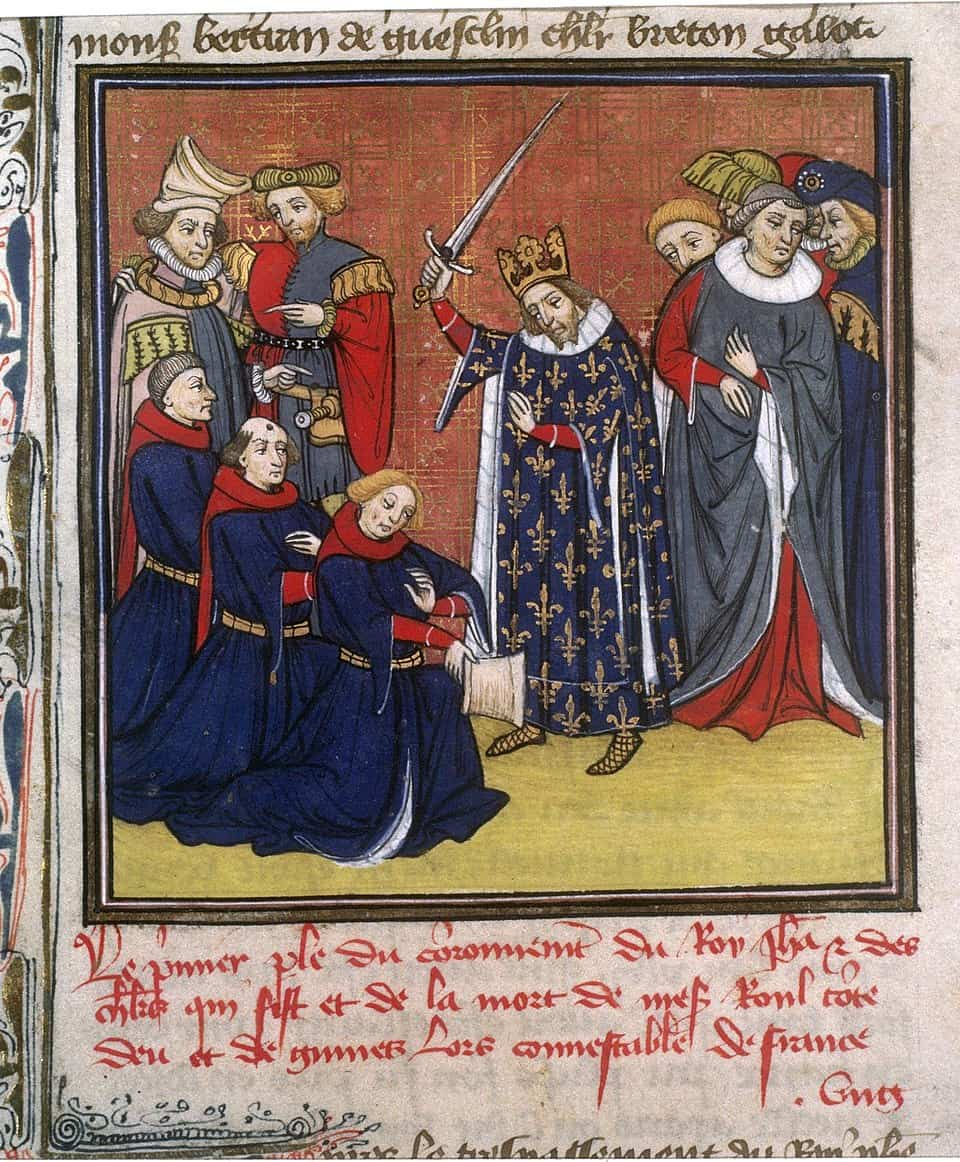 monſ bertran de gueſclin chlr breton
Le premier ple du coronnemt du Roy Jhā & des
chlrs qui fiſt et de la mort de meſſ Roul cōte
deu et de guines Lors conneſtable de france
apres le treſpaſſement du Roy phe